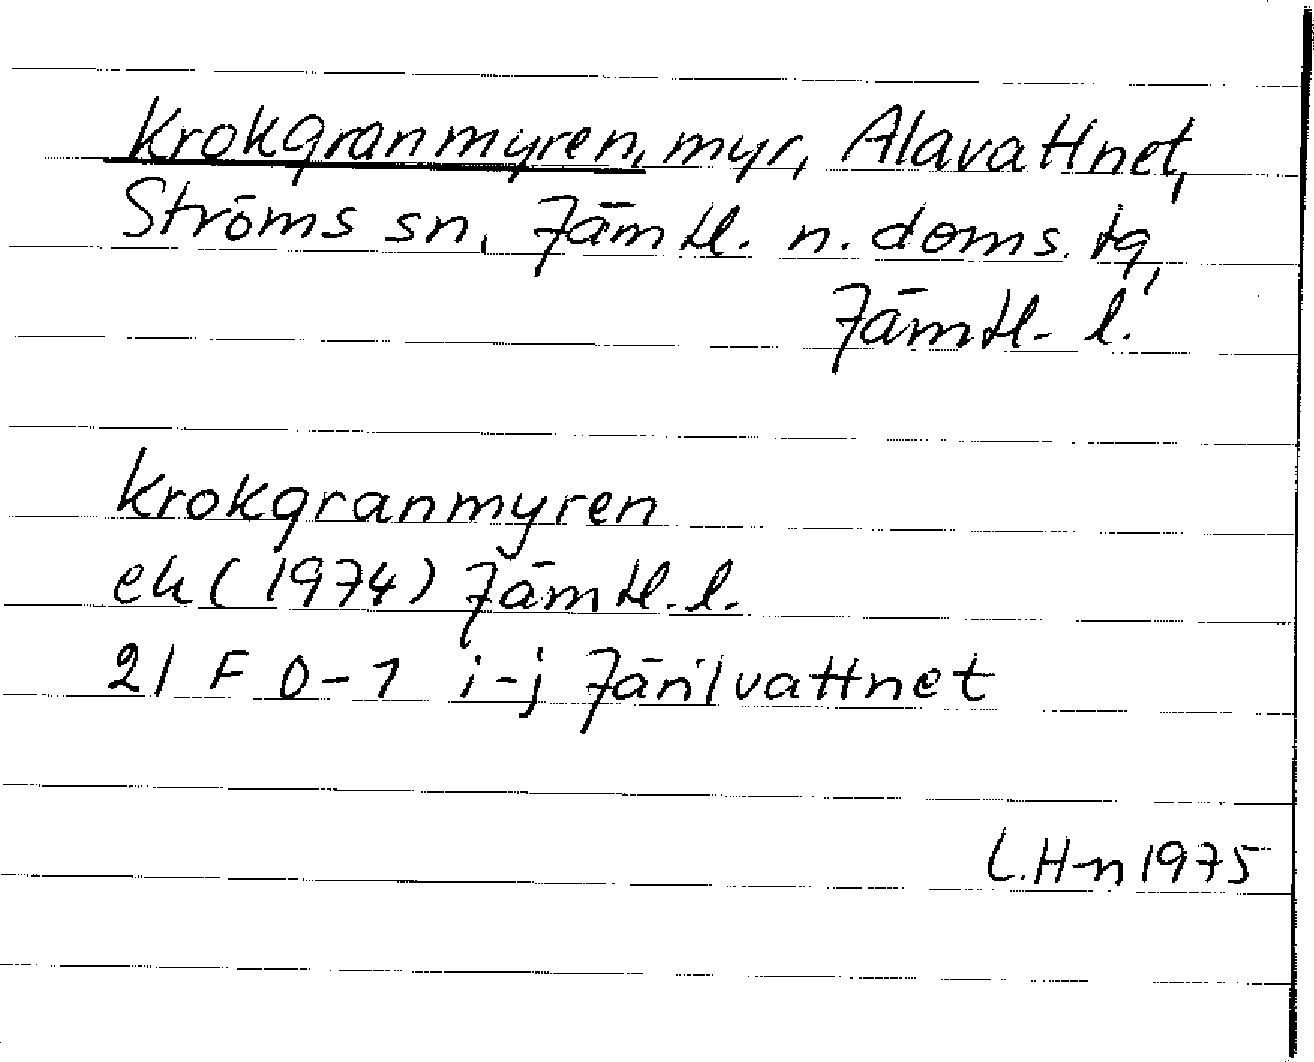 Krokgranmyren, myr, Alavattnet,
Ströms sn, Jämtl. n. doms. tg,
Jämtl. l.
Krokgranmyren
ek (1974) Jämtl. l.
21 F 0-1 i-j Järilvattnet
L.H-n 1975